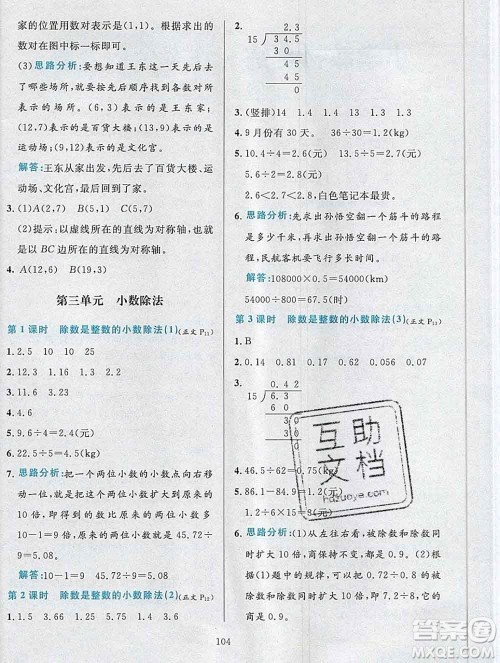 家的位置用数对表示是(1,1)。根据求出的
数对在图中标一标即可。
(3)思路分析:要想知道王东这一天先后去
了哪些场所,就要按先后顺序找到各数对所
表示的场所。(6,3)表示的是王东家,
(12,7)表示的是百货大楼,(13,1)表示的是
运动场,(9,11)表示的是文化宫。
解答:王东从家出发,先后去了百货大楼、运
动场、文化宫。
3.(1)A(2,1) B(5,1) C(3,3)
(2)提示:以虚线所在的直线为对称轴,也可
以 BC 边所在的直线为对称轴。
4.A(12,6) B(19,3)
第三单元 小数除法
第1课时 除数是整数的小数除法(1)(正文 P11)
1.2.5 10 10 25
2.1.15 3.22 1.24 1.3
3.11.6 4.3
4.
5.9.6÷4=2.4(元)
6.22.5÷9=2.5
7.思路分析:把一个两位小数的小数点向右移
动一位,得到的数就扩大到原来的10倍,新
的两位小数比原来的两位小数大了原来的
10-1=9倍。所以原来的两位小数是45.72÷
9=5.08。
解答:10-1=9 45.72÷9=5.08
第2课时 除数是整数的小数除法(2)(正文 P12)
1.1.5 3.66 1.25 7.4 1.55 4.8
2.
2.3
15 34.5
30
45
45
0
3.(竖排)1.4 0.8 1.5 1.39
4.9月份有30天。 36÷30=1.2(kg)
5.10.4÷4=2.6(元) 5.4÷2=2.7(元)
2.6<2.7<2.9 白色笔记本最贵。
6.思路分析:先求出孙悟空翻一个筋斗的路程
是多少千米,再求出孙悟空翻一个筋斗的路
程,民航客机要飞行多少小时。
解答:108000×0.5=54000(km)
54000÷800=67.5(时)
第3课时 除数是整数的小数除法(3)(正文 P13)
1.B
2.0.14 0.71 0.16 0.81 0.07 0.53
3.
0.42
15 6.3
60
30
30
0
4.46.5÷62=0.75(kg)
5.86.1-84.9=1.2(元)
1.2÷6×15=3(元)
6.思路分析:(1)从左往右看,被除数和除数同
时扩大10倍,商不变,都是0.9。
(2)根据(1)题的规律,可得只要被除数和除
数同时扩大相同的倍数(0除外),商不变,都
是0.9。
104
互助
文档
hazuoye.com
答案圈
MXQE.COM